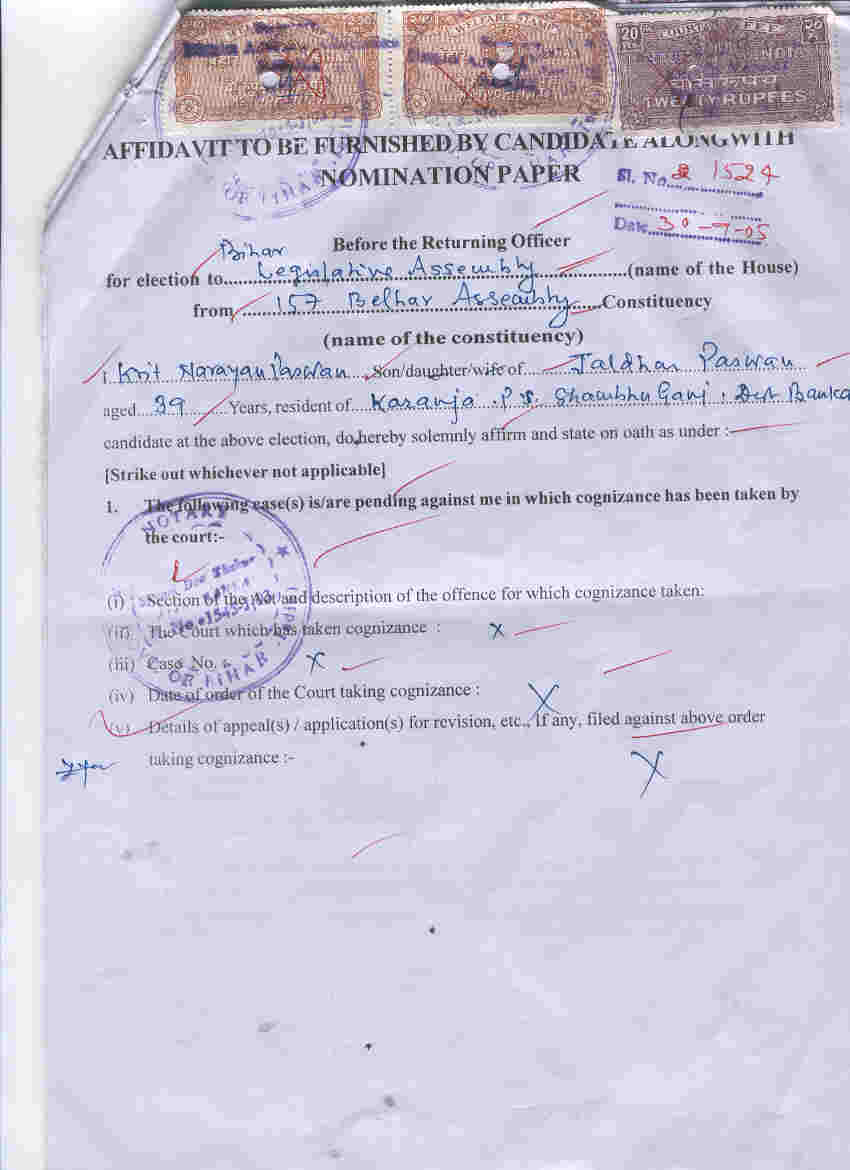 WELFARE STAMP
WELFARE STAMP
20 Rs. COURT FEE
INDIA
TWENTY RUPEES
AFFIDAVIT TO BE FURNISHED BY CANDIDATE ALONGWITH
NOMINATION PAPER
Sl. No. 1524
Date 30-7-05
Before the Returning Officer
Bihar
for election to Legislative Assembly (name of the House)
from 157 Belhar Assembly Constituency
(name of the constituency)
I Narayan Paswan Son/daughter/wife of Jaldhar Paswan
aged 39 Years, resident of Karanja P.S. Shambhu Ganj, Dist Banka
candidate at the above election, do hereby solemnly affirm and state on oath as under :-
[Strike out whichever not applicable]
1. The following case(s) is/are pending against me in which cognizance has been taken by
the court:-
NOTARY
OF BIHAR
(i) Section of the Act and description of the offence for which cognizance taken:
(ii) The Court which has taken cognizance : X
(iii) Case No. X
(iv) Date of order of the Court taking cognizance : X
(v) Details of appeal(s) / application(s) for revision, etc., If any, filed against above order
taking cognizance :- X